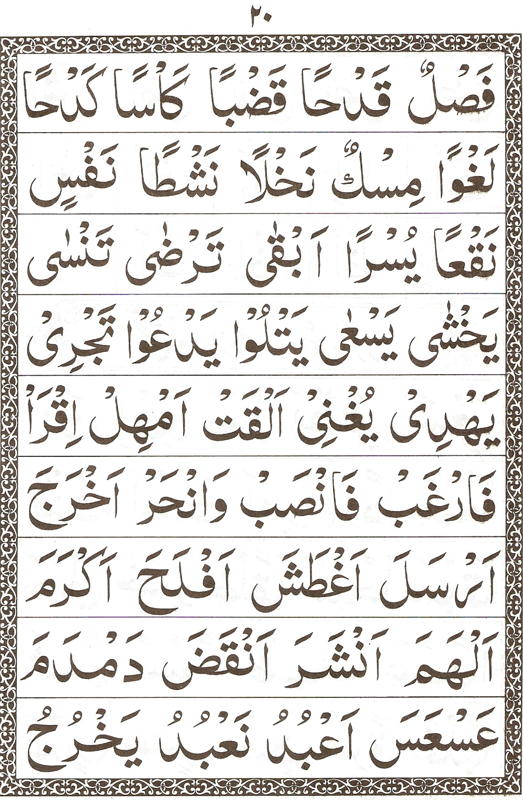 ٢٠
فَصْلٌ قَدْحًا قَضْبًا كَاْسًا كَدْحًا
لَغْوًا مِسْكٌ نَخْلًا نَشْطًا نَفْسٍ
نَقْعًا يُسْرًا اَبْقٰى تَرْضٰى تَنْسٰى
يَخْشٰى يَسْعٰى يَتْلُوْا يَدْعُوْا تَجْرِىْ
يَهْدِىْ يُغْنِىْ اَلْقَتْ اَمْهِلْ اِقْرَاْ
فَارْغَبْ فَانْصَبْ وَانْحَرْ اَخْرَجَ
اَرْسَلَ اَغْطَشَ اَفْلَحَ اَكْرَمَ
اَلْهَمَ اَنْشَرَ اَنْقَضَ دَمْدَمَ
عَسْعَسَ اَعْبُدُ نَعْبُدُ يَخْرُجُ